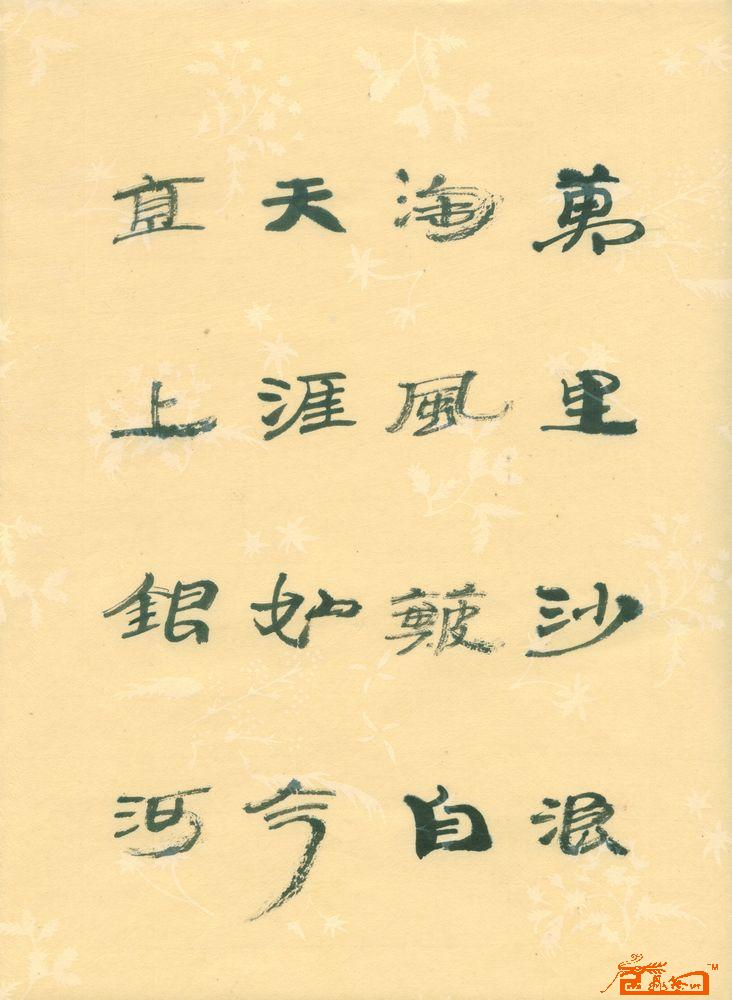 萬里沙浪
淘風簸自
天涯如今
直上銀河